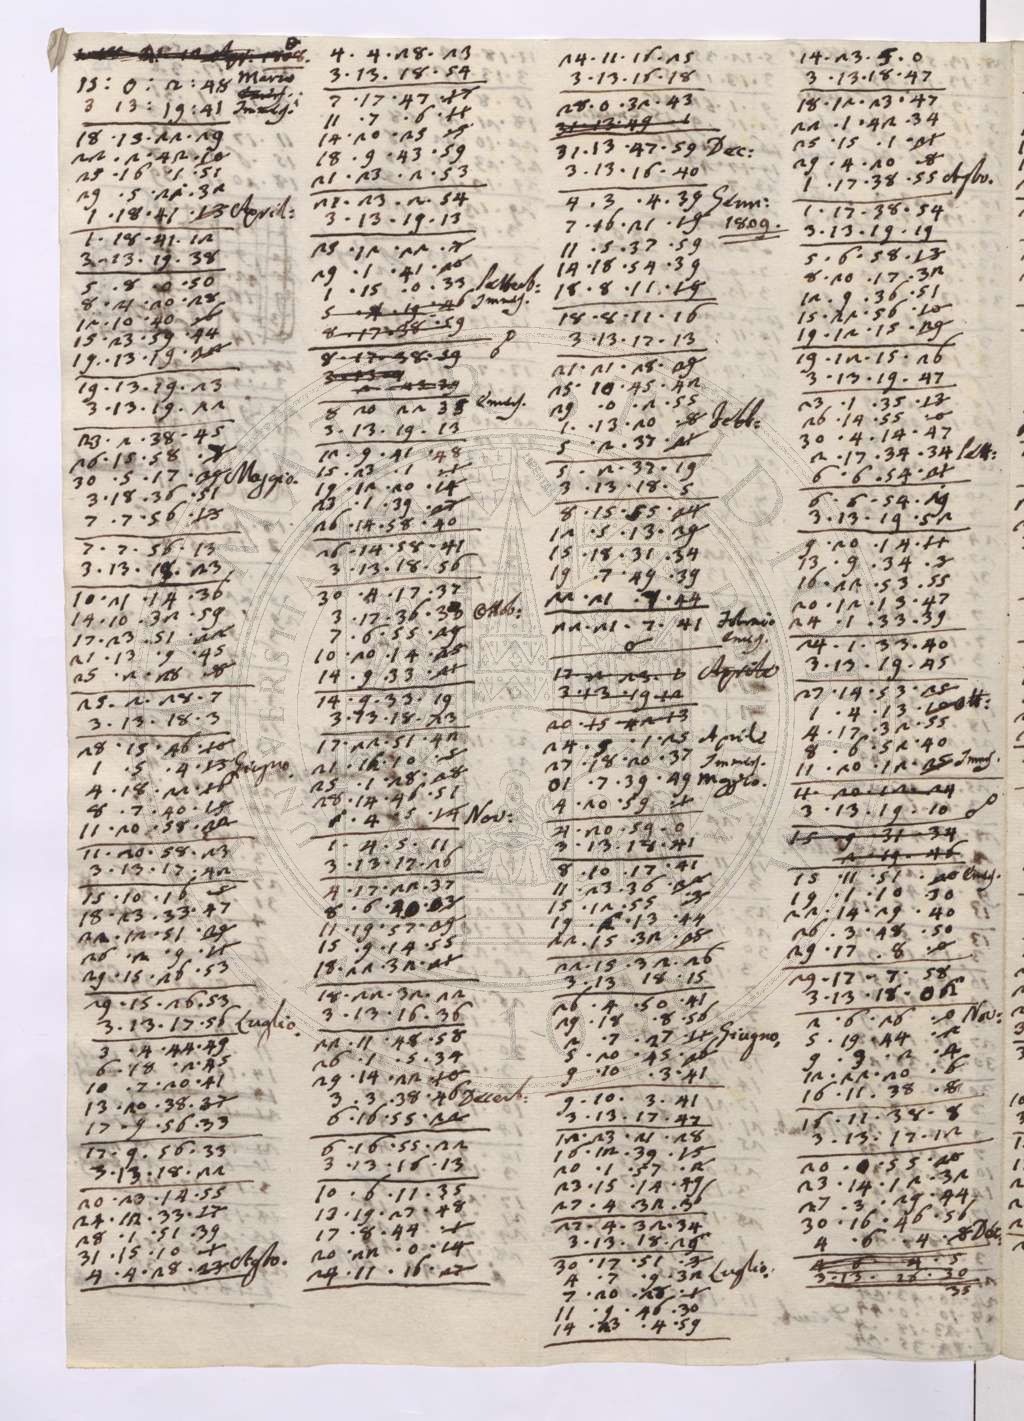 15 : 0 : 2 : 48 Marzo
3 13 : 19 : 41 Immes.
18 · 13 · 22 · 29
22 · 2 · 42 · 10
25 · 16 · 1 · 51
29 · 5 · 21 · 32
1 · 18 · 41 · 13 April:
1 · 18 · 41 · 12
3 · 13 · 19 · 38
5 · 8 · 0 · 50
8 · 21 · 20 · 28
12 · 10 · 40 · 6
15 · 23 · 59 · 44
19 · 13 · 19 · 22
19 · 13 · 19 · 23
3 · 13 · 19 · 22
23 · 2 · 38 · 45
26 · 15 · 58 · 7
30 · 5 · 17 · 29 Maggio.
3 · 18 · 36 · 51
7 · 7 · 56 · 13
7 · 7 · 56 · 13
3 · 13 · 18 · 23
10 · 21 · 14 · 36
14 · 10 · 32 · 59
17 · 23 · 51 · 22
21 · 13 · 9 · 45
25 · 2 · 28 · 8
25 · 2 · 28 · 7
3 · 13 · 18 · 3
28 · 15 · 46 · 10
1 · 5 · 4 · 13 Giugno.
4 · 18 · 22 · 16
8 · 7 · 40 · 19
11 · 20 · 58 · 22
11 · 20 · 58 · 23
3 · 13 · 17 · 42
15 · 10 · 16 · 5
18 · 23 · 33 · 47
22 · 12 · 51 · 29
26 · 2 · 9 · 11
29 · 15 · 26 · 53
29 · 15 · 26 · 53
3 · 13 · 17 · 56 Luglio.
3 · 4 · 44 · 49
6 · 18 · 2 · 45
10 · 7 · 20 · 41
13 · 20 · 38 · 37
17 · 9 · 56 · 33
17 · 9 · 56 · 33
3 · 13 · 18 · 22
20 · 23 · 14 · 55
24 · 12 · 33 · 17
28 · 1 · 51 · 39
31 · 15 · 10 · 1
4 · 4 · 28 · 23 Agto.
4 · 4 · 28 · 23
3 · 13 · 18 · 54
7 · 17 · 47 · 17
11 · 7 · 6 · 11
14 · 20 · 25 · 5
18 · 9 · 43 · 59
21 · 23 · 2 · 53
21 · 23 · 2 · 54
3 · 13 · 19 · 13
25 · 12 · 22 · 7
29 · 1 · 41 · 20
1 · 15 · 0 · 33 Settemb:
5 · 4 · 19 · 46 Immes.
8 · 17 · 38 · 59
8 · 17 · 38 · 59
8 20 22 35 Emes.
3 · 13 · 19 · 13
22 · 9 · 41 · 48
15 · 23 · 1 · 1
19 · 12 · 20 · 14
23 · 1 · 39 · 27
26 · 14 · 58 · 40
26 · 14 · 58 · 41
3 · 13 · 18 · 56
30 · 4 · 17 · 37
3 · 17 · 36 · 33 Ottob:
7 · 6 · 55 · 29
10 · 20 · 14 · 25
14 · 9 · 33 · 21
14 · 9 · 33 · 19
3 · 13 · 18 · 23
17 · 22 · 51 · 42
21 · 12 · 10 · 5
25 · 1 · 28 · 28
28 · 14 · 46 · 51
1 · 4 · 5 · 14 Nov:
1 · 4 · 5 · 11
3 · 13 · 17 · 26
4 · 17 · 22 · 37
8 · 6 · 40 · 03
11 · 19 · 57 · 29
15 · 9 · 14 · 55
18 · 22 · 32 · 21
18 · 22 · 32 · 22
3 · 13 · 16 · 36
22 · 11 · 48 · 58
26 · 1 · 5 · 34
29 · 14 · 22 · 10
3 · 3 · 38 · 46 Decemb:
6 · 16 · 55 · 22
6 · 16 · 55 · 22
3 · 13 · 16 · 13
10 · 6 · 11 · 35
13 · 19 · 27 · 48
17 · 8 · 44 · 1
20 · 22 · 0 · 14
24 · 11 · 16 · 27
24 · 11 · 16 · 25
3 · 13 · 16 · 18
28 · 0 · 32 · 43
31 · 13 · 49 · 1
31 · 13 · 47 · 59 Dec:
3 · 13 · 16 · 40
4 · 3 · 4 · 39 Genn:
7 · 16 · 21 · 19 1809.
11 · 5 · 37 · 59
14 · 18 · 54 · 39
18 · 8 · 11 · 19
18 · 8 · 11 · 16
3 · 13 · 17 · 13
21 · 21 · 28 · 29
25 · 10 · 45 · 42
29 · 0 · 2 · 55
1 · 13 · 20 · 8 Febb:
5 · 2 · 37 · 21
5 · 2 · 37 · 19
3 · 13 · 18 · 5
8 · 15 · 55 · 24
12 · 5 · 13 · 29
15 · 18 · 31 · 34
19 · 7 · 49 · 39
22 · 21 · 7 · 44
22 · 21 · 7 · 41 Febraio
Emes.
Aprile
3 · 13 · 19 · 12
24 · 9 · 1 · 25 Aprile
27 · 18 · 20 · 37 Immes.
01 · 7 · 39 · 49 Maggio.
4 · 20 · 59 · 1
4 · 20 · 59 · 0
3 · 13 · 18 · 41
8 · 10 · 17 · 41
11 · 23 · 36 · 22
15 · 12 · 55 · 3
19 · 2 · 13 · 44
22 · 15 · 32 · 25
22 · 15 · 32 · 26
3 · 13 18 · 15
26 · 4 · 50 · 41
29 · 18 · 8 · 56
2 · 7 · 27 · 11 Giugno.
5 · 20 · 45 · 26
9 · 10 · 3 · 41
9 · 10 · 3 · 41
3 · 13 · 17 · 47
12 · 23 · 21 · 28
16 · 12 · 39 · 15
20 · 1 · 57 · 2
23 · 15 · 14 · 49
27 · 4 · 32 · 36
27 · 4 · 32 · 34
3 · 13 · 18 · 26
30 · 17 · 51 · 3
4 · 7 · 9 · 32 Luglio.
7 · 20 · 28 · 1
11 · 9 · 46 · 30
14 · 23 · 4 · 59
14 · 23 · 5 · 0
3 · 13 · 18 · 47
18 · 12 · 23 · 47
22 · 1 · 42 · 34
25 · 15 · 1 · 21
29 · 4 · 20 · 8
1 · 17 · 38 · 55 Agto.
1 · 17 · 38 · 54
3 · 13 · 19 · 19
5 · 6 · 58 · 13
8 · 20 · 17 · 32
12 · 9 · 36 · 51
15 · 22 · 56 · 10
19 · 12 · 15 · 29
19 · 12 · 15 · 26
3 · 13 · 19 · 47
23 · 1 · 35 · 13
26 · 14 · 55 · 0
30 · 4 · 14 · 47
2 · 17 · 34 · 34 Sett:
6 · 6 · 54 · 21
6 · 6 · 54 · 19
3 · 13 · 19 · 52
9 · 20 · 14 · 11
13 · 9 · 34 · 3
16 · 22 · 53 · 55
20 · 12 · 13 · 47
24 · 1 · 33 · 39
24 · 1 · 33 · 40
3 · 13 · 19 · 45
27 · 14 · 53 · 25
1 · 4 · 13 · 10 Ott:
4 · 17 · 32 · 55
8 · 6 · 52 · 40
11 · 20 · 12 · 25 Immes.
11 · 20 · 12 · 24
3 · 13 · 19 · 10
15 · 9 · 31 · 34
15 · 11 · 51 · 20 Emes.
19 · 1 · 10 · 30
22 · 14 · 29 · 40
26 · 3 · 48 · 50
29 · 17 · 8 · 0
29 · 17 · 7 · 58
3 · 13 · 18 · 02
2 · 6 · 26 · 0 Nov:
5 · 19 · 44 · 2
9 · 9 · 2 · 4
12 · 22 · 20 · 6
16 · 11 · 38 · 8
16 · 11 · 38 · 8
3 · 13 · 17 · 12
20 · 0 · 55 · 20
23 · 14 · 12 · 32
27 · 3 · 29 · 44
30 · 16 · 46 · 56
4 · 6 · 4 · 8 Dec:
4 · 6 · 4 · 5